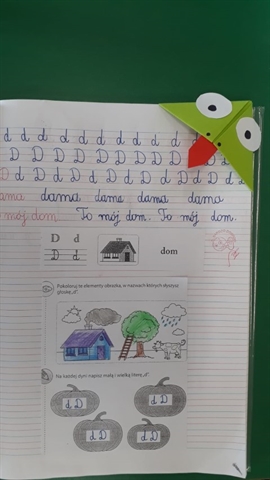 d d d d d d d d d d d
D D D D D D D D D D D
D d D d D d D d D d D d D d
dama dama dama dama dama
mój dom To mój dom. To mój dom.
D d
D d
dom
Pokoloruj te elementy obrazka, w nazwach których słyszysz
głoskę „d”.
Na każdej dyni napisz małą i wielką literę „d”.
d D
d D
d D
d D